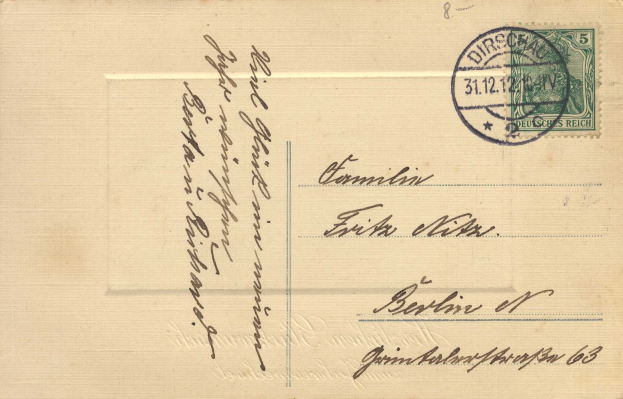 8.-
Viel Glück im neuen
Jahr wünschen
Berta u Richard.
DIRSCHAU
31.12.12. 10-11V
* 2 c
5
DEUTSCHES REICH
Familie
Fritz Nitz.
Berlin N
Grüntalerstraße 63